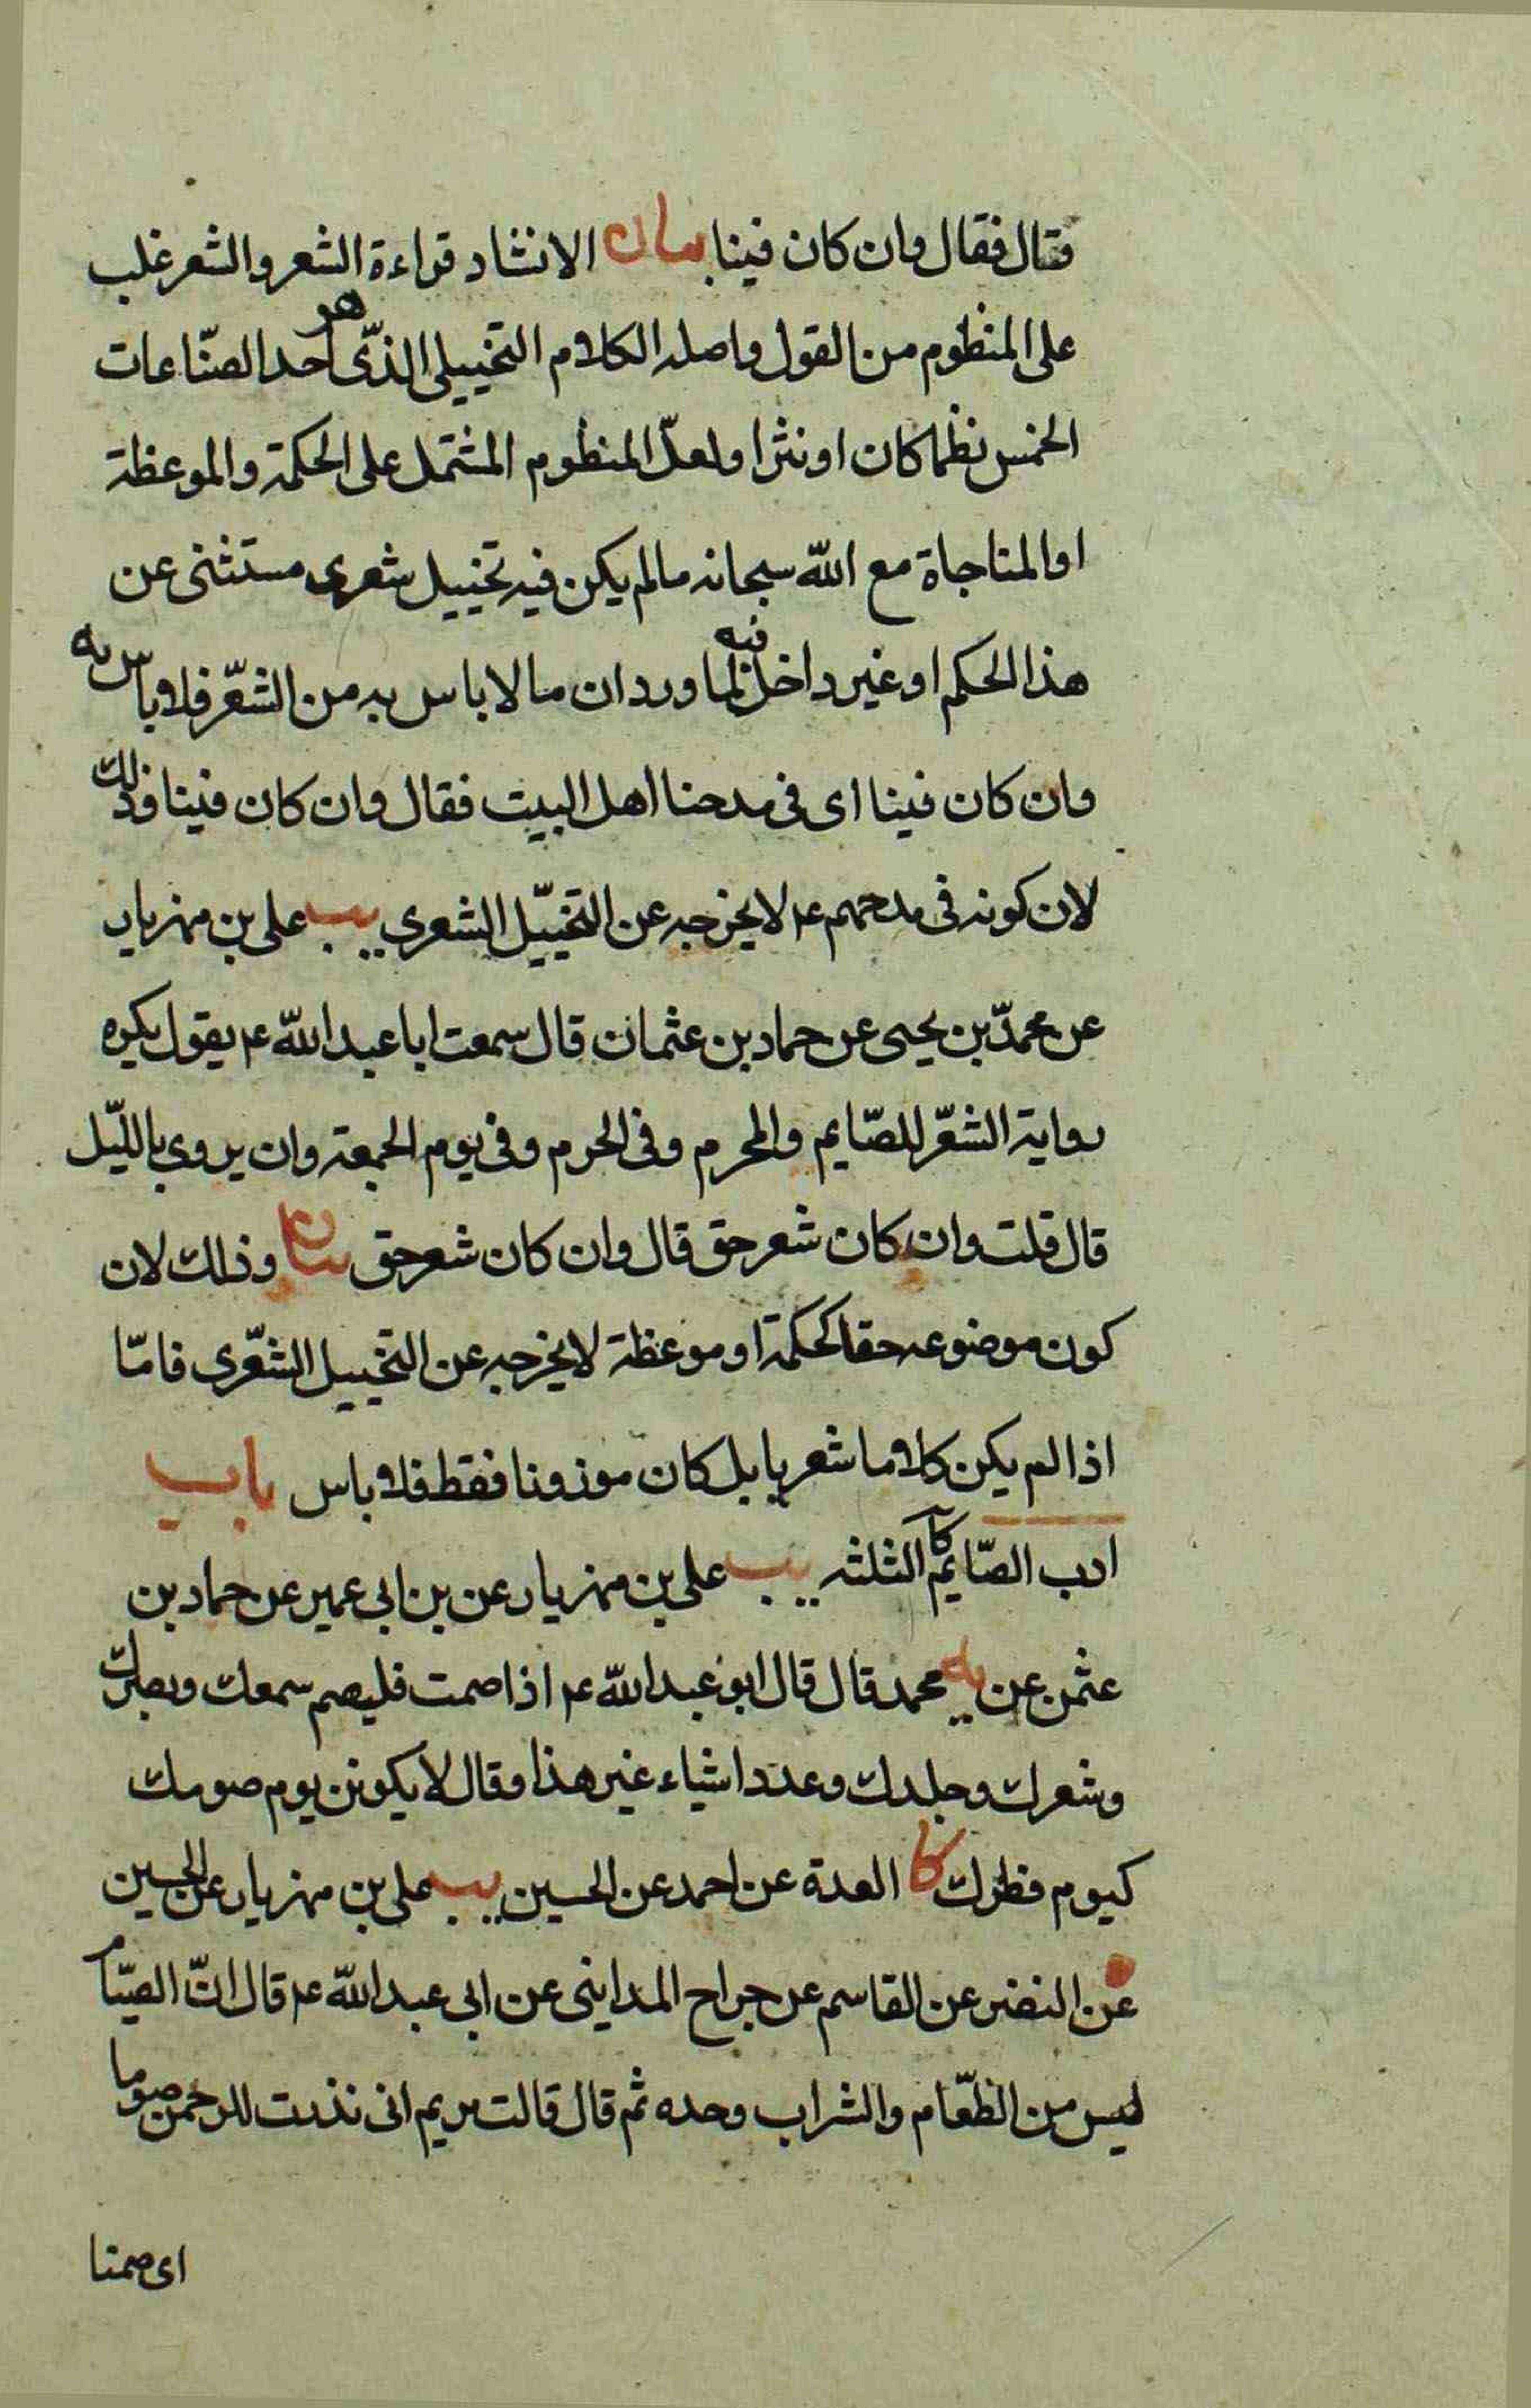 فقال فقال وان كان فينا بيان الانشاد قراءة الشعر والشعر غلب
على المنظوم من القول واصله الكلام التخييلى الذّى هو احد الصنّاعات
الخمس نظما كان او نثرا ولعلّ المنظوم المشتمل على الحكمة والموعظة
او المناجاة مع اللّه سبحانه مالم يكن فيه تخييل شعرى مستثنى عن
هذا الحكم او غير داخل فيه لما ورد ان ما لا باس به من الشعّر فلا باس به
وان كان فينا اى فى مدحنا اهل البيت فقال وان كان فينا وذلك
لان كونه فى مدحهم ع لا يخرجه عن التخييّل الشعرى يب على بن مهزيار
عن محمدّ بن يحيى عن حماد بن عثمان قال سمعت ابا عبد اللّه ع يقول يكره
رواية الشعّر للصّايم والمحرم وفى الحرم وفى يوم الجمعة وان يروى بالليّل
قال قلت وان كان شعر حق قال وان كان شعر حق بيان وذلك لان
كون موضوعه حقا كحكمة او موعظة لا يخرجه عن التخييل الشعّرى فامّا
اذا لم يكن كلاما شعريا بل كان موزونا فقط فلا باس باب
ادب الصّايم كا الثلثه يب على بن مهزيار عن بن ابى عمير عن حماد بن
عثمن عن يه محمد قال قال ابو عبد اللّه ع اذا صمت فليصم سمعك وبصرك
وشعرك وجلدك وعدد اشياء غير هذا وقال لا يكونن يوم صومك
كيوم فطرك كا العدة عن احمد عن الحسين يب على بن مهزيار عن الحسين
عن النضر عن القاسم عن جراح المداينى عن ابى عبد اللّه ع قال انّ الصيّام
ليس من الطّعام والشراب وحده ثم قال قالت مريم انى نذرت للرحمن صوما
اى صمتا